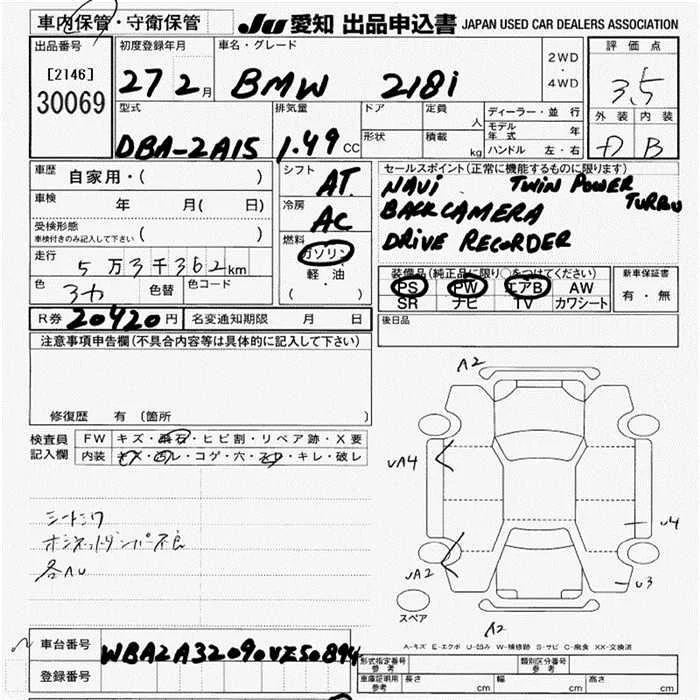 車内保管・守衛保管 JU 愛知 出品申込書 JAPAN USED CAR DEALERS ASSOCIATION
出品番号 初度登録年月 車名・グレード 2WD・4WD 評価点
[2146] 27 2月 BMW 218i 3.5
30069
型式 排気量 ドア 定員 人 ディーラー・並行 外装 内装
DBA-2A15 1.49 CC 形状 積載 kg モデル年式 年 D B
ハンドル 左・右
車歴 自家用・( ) シフト AT セールスポイント(正常に機能するものに限ります)
車検 年 月( 日) 冷房 AC NAVI TWIN POWER TURBO
受検形態 BACK CAMERA
車検付きのみ記入して下さい ( ) 燃料 DRIVE RECORDER
走行 5万3千362km ガソリン 装備品(純正品に限り○をつけてください) 新車保証書
色 色替 色コード 軽・油 PS PW エアB AW 有・無
( ) SR ナビ TV カワシート
R券 20420円 名変通知期限 月 日 後日品
注意事項申告欄(不具合内容等は具体的に記入して下さい)
修復歴 有 (箇所 )
検査員 FW キズ・飛石・ヒビ割・リペア跡・X要
記入欄 内装 キズ・汚レ・コゲ・穴・スレ・キレ・破レ
A2
UA4
U4
シートシワ
ボンネットダンパー不良
UA2
U3
スペア
A2
A-キズ E-エクボ U-凹み W-補修跡 S-サビ C-腐食 XX-交換済
車台番号 WBA2A32090VZ50894 形式指定番号 参考 類別区分番号 参考
登録番号 車庫証明用 参考 長さ cm 幅 cm 高さ cm